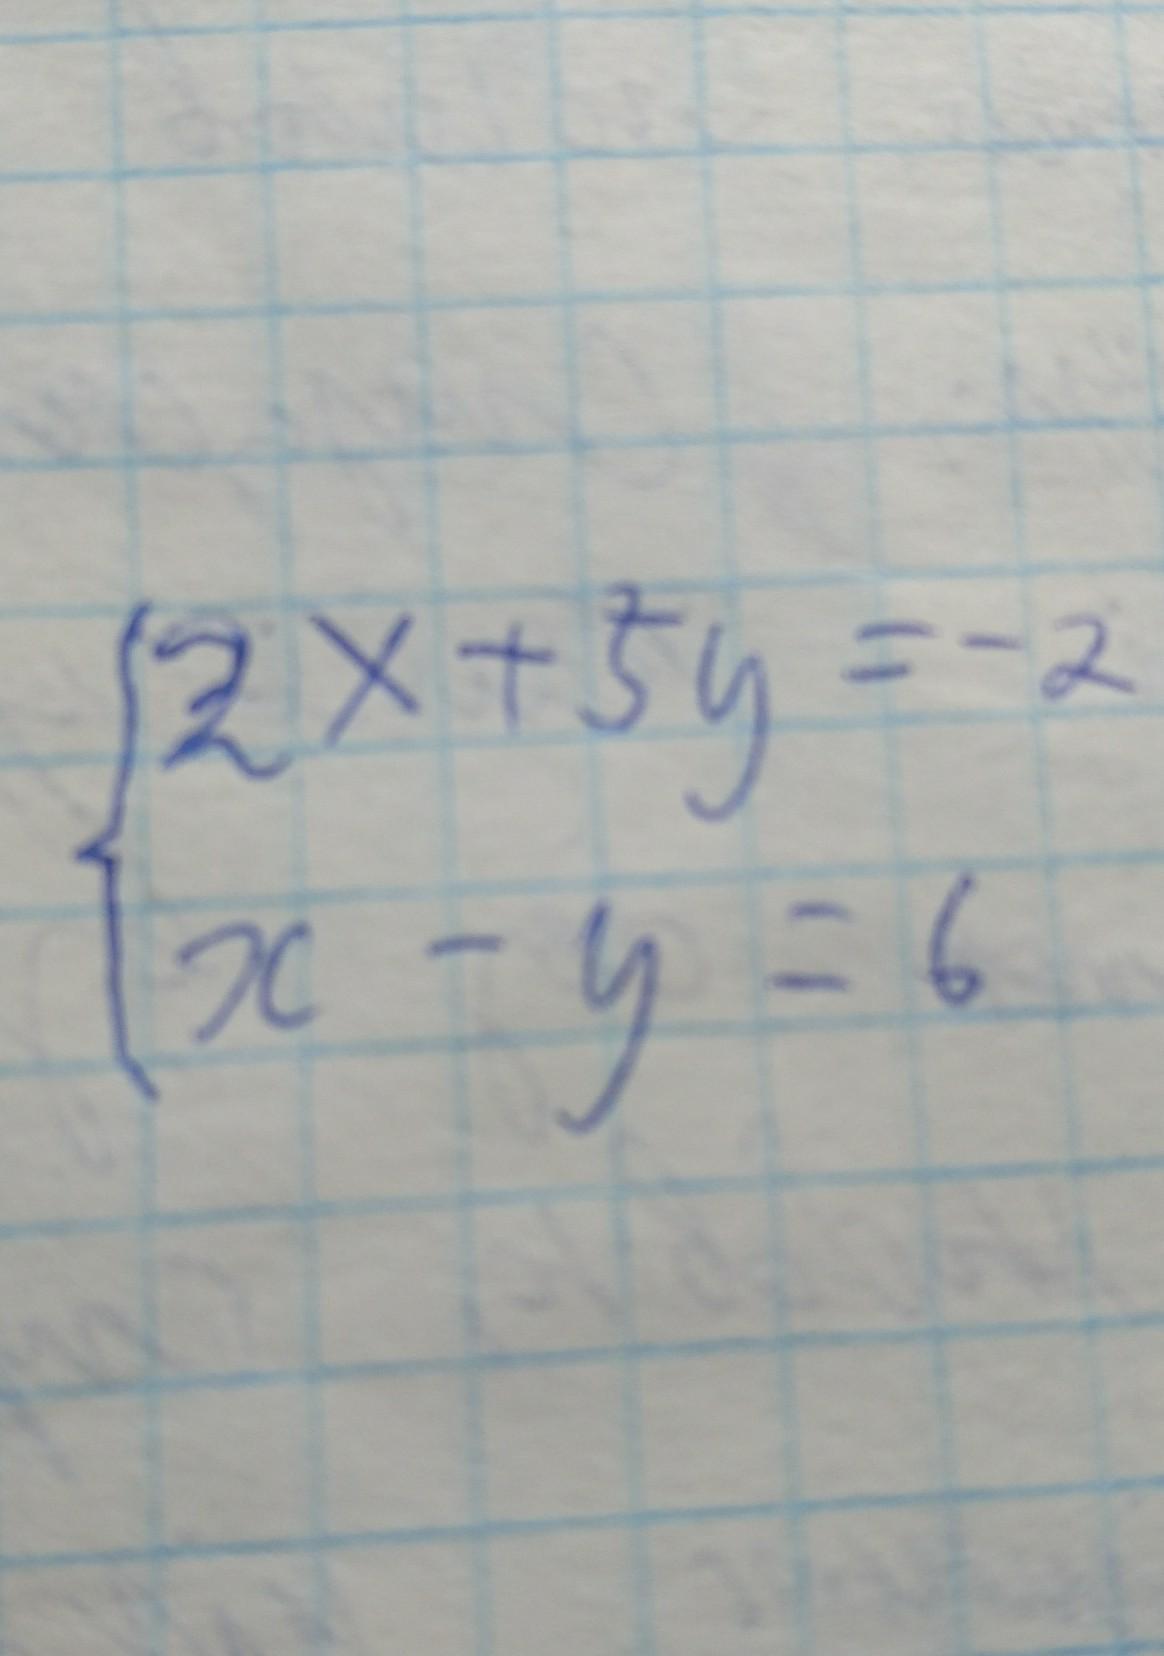 2x+5y=-2
x-y=6